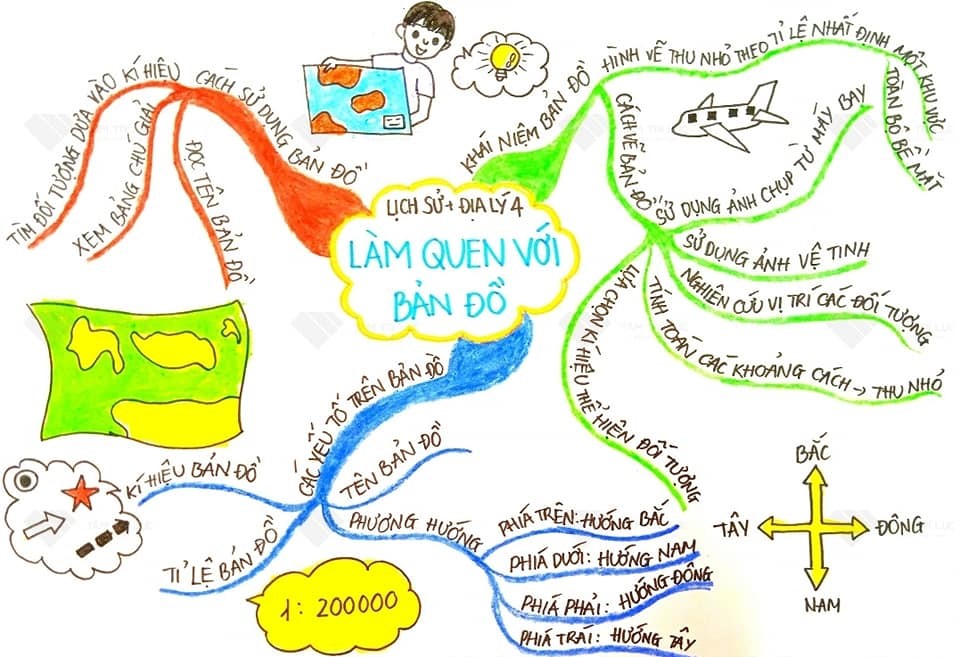 LỊCH SỬ + ĐỊA LÝ 4
LÀM QUEN VỚI
BẢN ĐỒ
KHÁI NIỆM BẢN ĐỒ
HÌNH VẼ THU NHỎ THEO TỈ LỆ NHẤT ĐỊNH
MỘT KHU VỰC
TOÀN BỘ BỀ MẶT
CÁCH VẼ BẢN ĐỒ
SỬ DỤNG ẢNH CHỤP TỪ MÁY BAY
SỬ DỤNG ẢNH VỆ TINH
NGHIÊN CỨU VỊ TRÍ CÁC ĐỐI TƯỢNG
TÍNH TOÁN CÁC KHOẢNG CÁCH → THU NHỎ
LỰA CHỌN KÍ HIỆU THỂ HIỆN ĐỐI TƯỢNG
CÁC YẾU TỐ TRÊN BẢN ĐỒ
TÊN BẢN ĐỒ
PHƯƠNG HƯỚNG
PHÍA TRÊN: HƯỚNG BẮC
PHÍA DƯỚI: HƯỚNG NAM
PHÍA PHẢI: HƯỚNG ĐÔNG
PHÍA TRÁI: HƯỚNG TÂY
TỈ LỆ BẢN ĐỒ
1: 200000
KÍ HIỆU BẢN ĐỒ
CÁCH SỬ DỤNG BẢN ĐỒ
ĐỌC TÊN BẢN ĐỒ
XEM BẢNG CHÚ GIẢI
TÌM ĐỐI TƯỢNG DỰA VÀO KÍ HIỆU
BẮC
TÂY
ĐÔNG
NAM